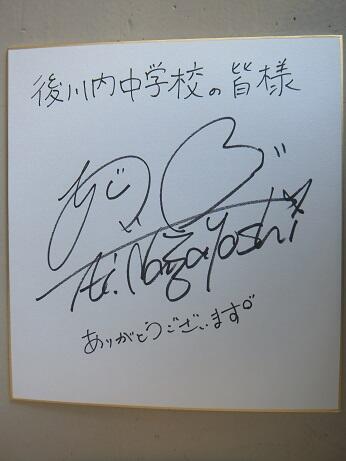 後川内中学校の皆様
Ai.Nagayoshi
ありがとうございます